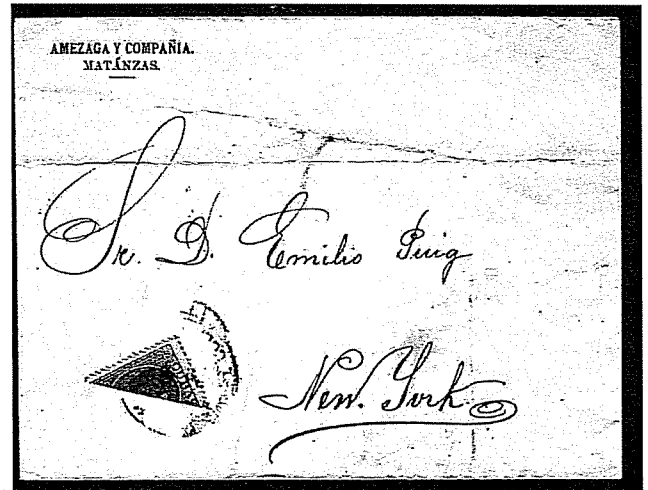 AMEZAGA Y COMPAÑIA.
MATANZAS.
Sr. D. Emilio Puig
New. York.